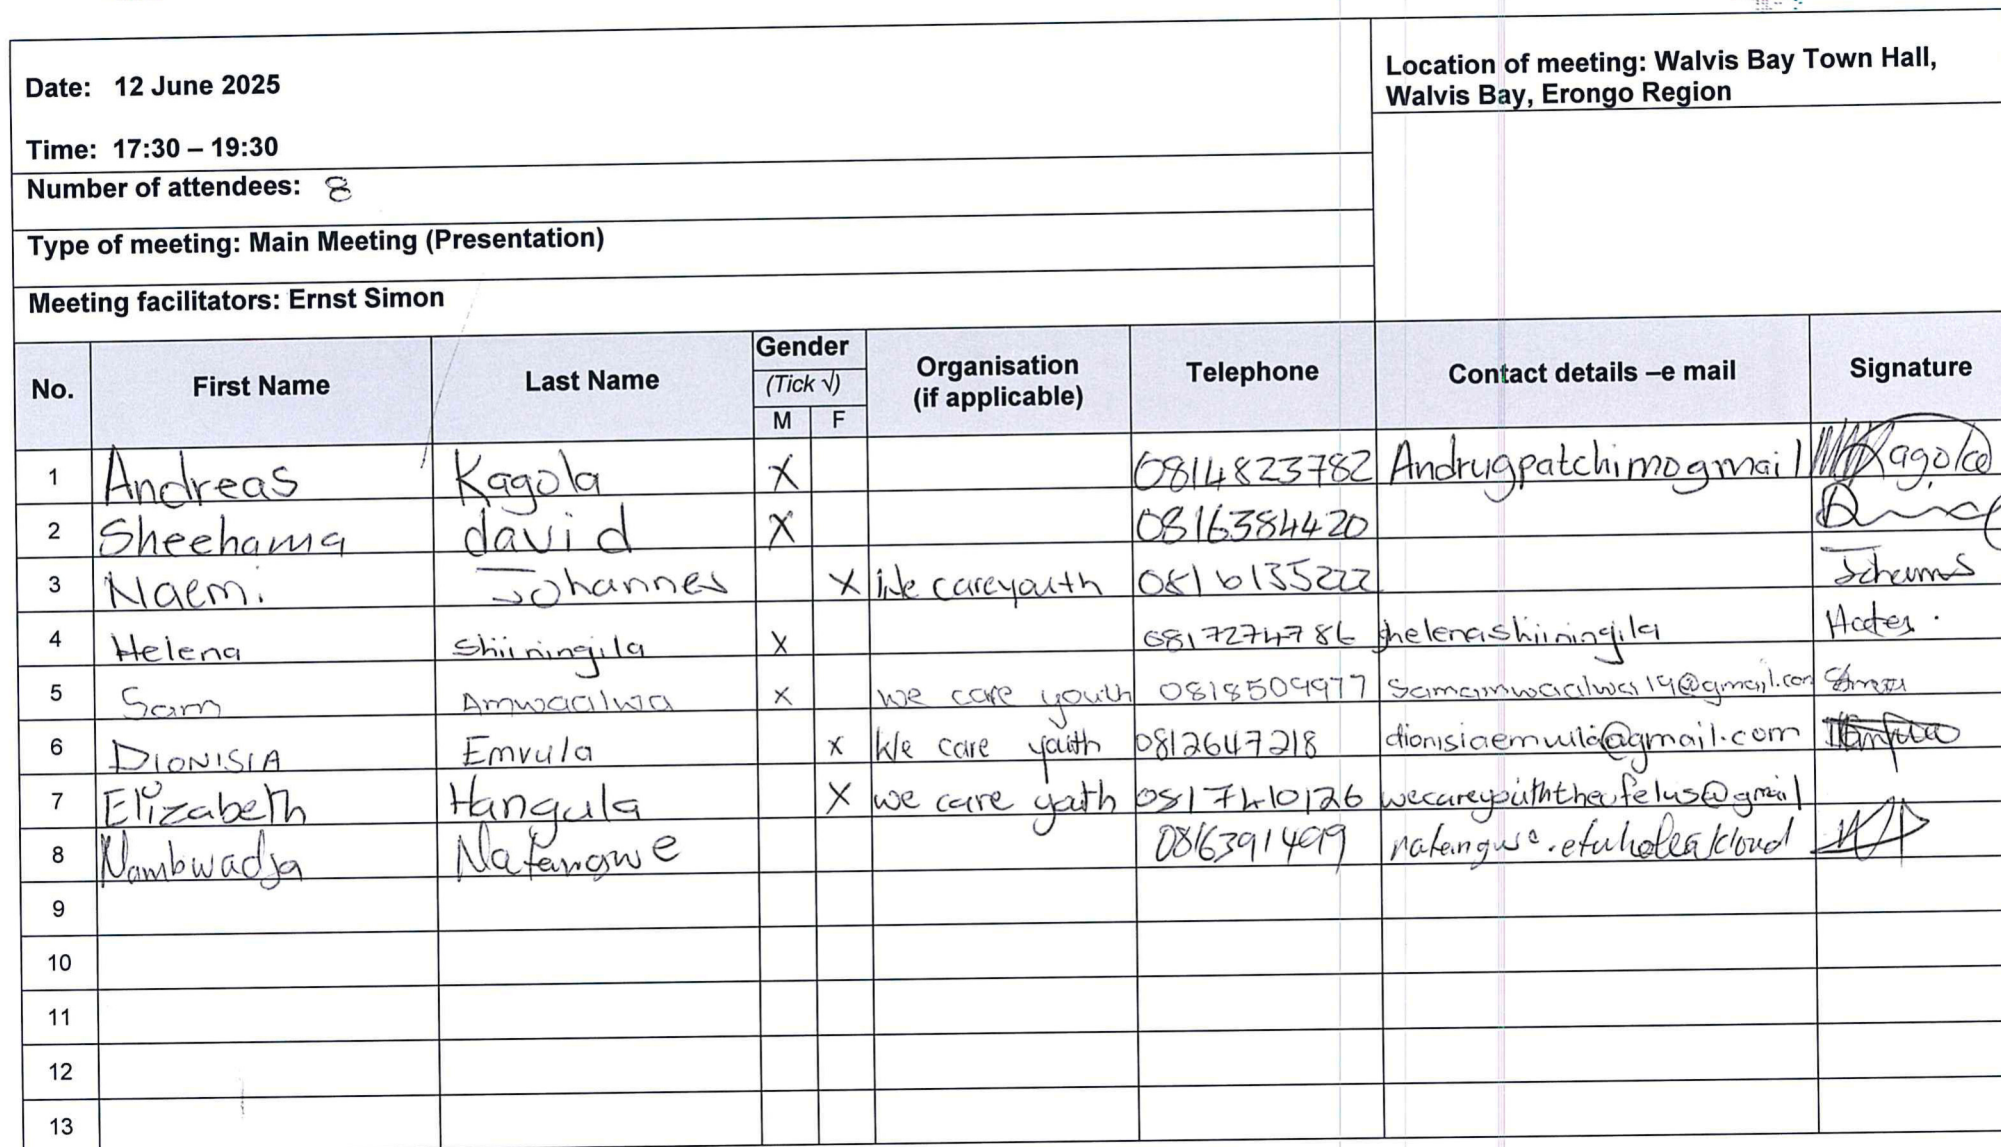 Date: 12 June 2025
Location of meeting: Walvis Bay Town Hall,
Walvis Bay, Erongo Region
Time: 17:30 – 19:30
Number of attendees: 8
Type of meeting: Main Meeting (Presentation)
Meeting facilitators: Ernst Simon
No. First Name Last Name Gender (Tick √) M F Organisation (if applicable) Telephone Contact details –e mail Signature
1 Andreas Kagola X 0814823782 Andrugpatchimogmail Kagola
2 Sheehama david X 0816384420
3 Naemi Johannes X We careyouth 0816135222
4 Helena Shiiningila X 0817274786 helenashiiningila
5 Sam Amwaalwa X We care youth 0818509977 Samamwaalwa19@gmail.com
6 DIONISIA Emvula X We care youth 0812647218 dionisiaemvula@gmail.com
7 Elizabeth Hangula X we care youth 0817410126
8 Nambwadja Natangwe
9
10
11
12
13